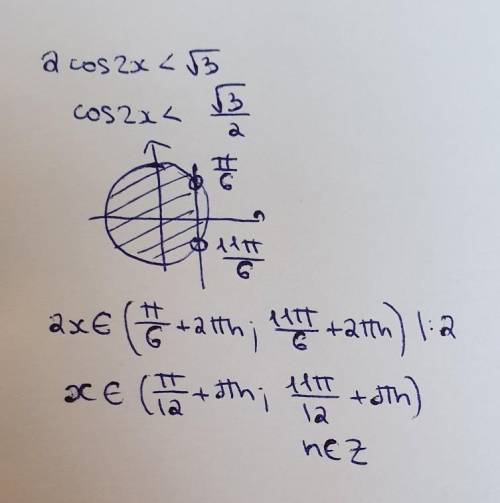 2 cos2x < √3
cos2x < √3/2
π/6
11π/6
2x ∈ (π/6 + 2πn; 11π/6 + 2πn) |:2
x ∈ (π/12 + πn; 11π/12 + πn)
n ∈ Z